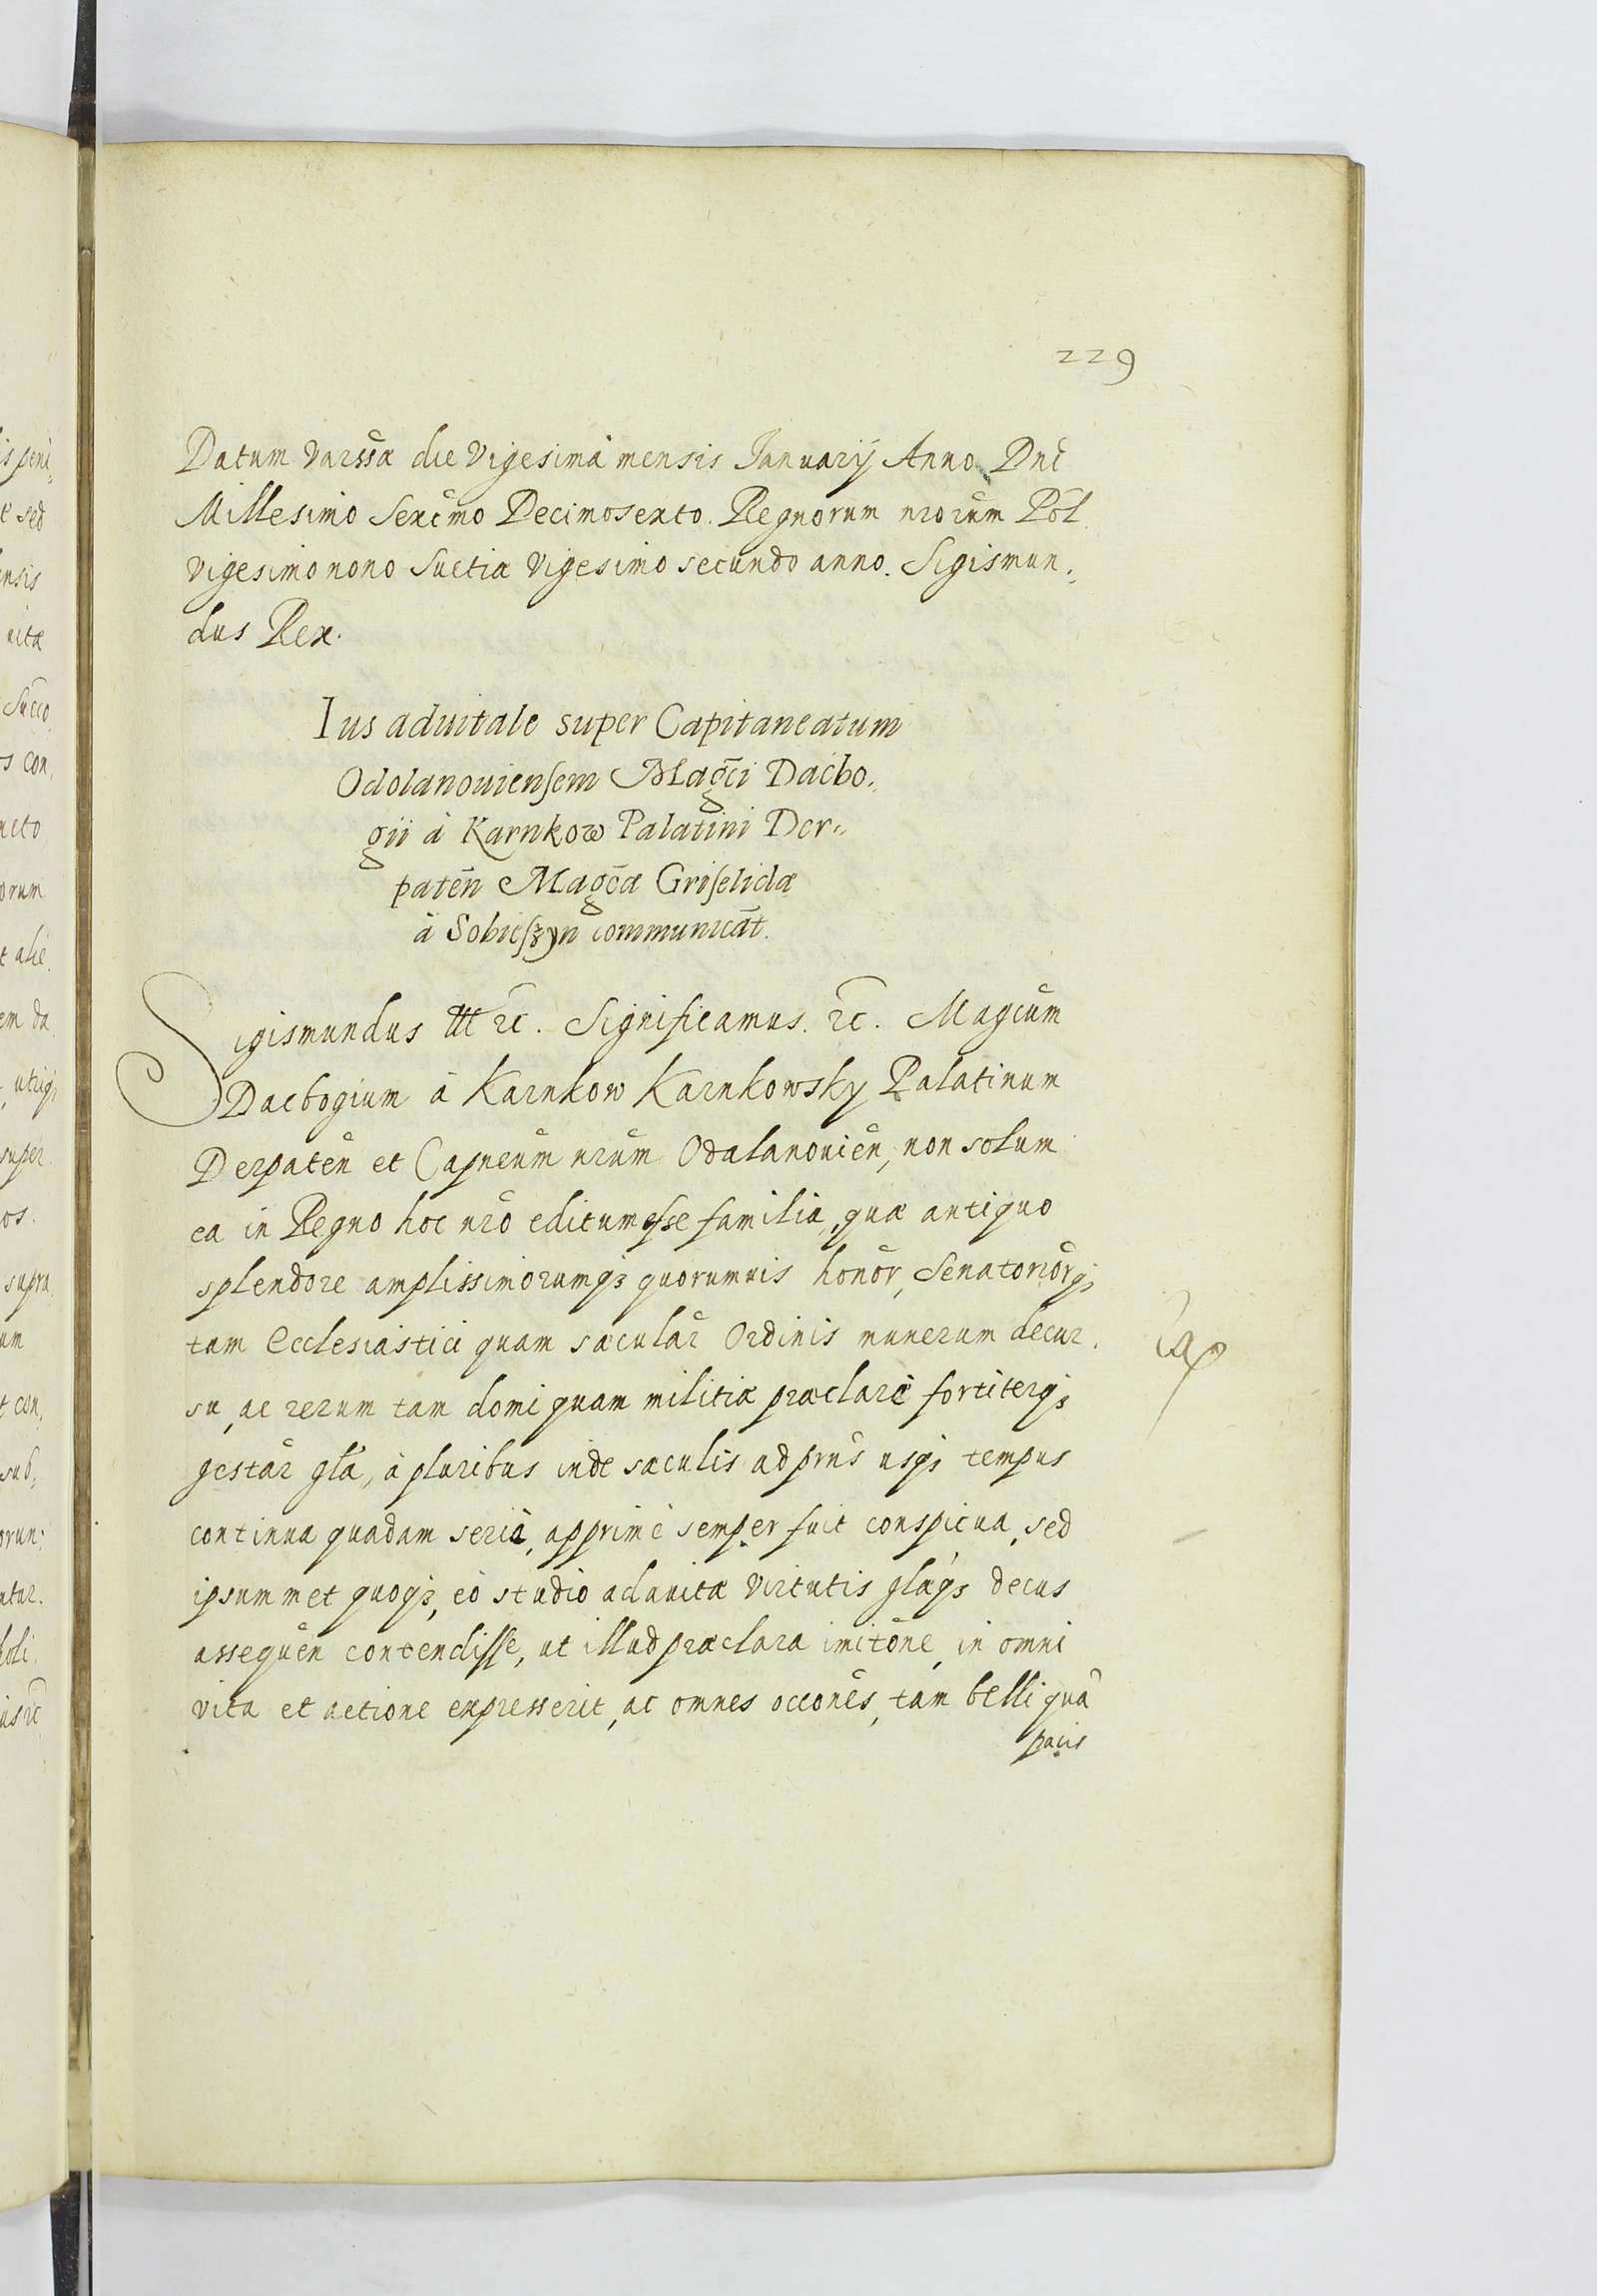 229
Datum Varssae die Vigesima mensis Ianuarij Anno Dni
Millesimo Sexcmo Decimosexto. Regnorum nrorum Pol.
Vigesimo nono Suetiae Vigesimo secundo anno. Sigismun.,
dus Rex.
Ius aduitale super Capitaneatum
Odolanouiensem Magci Dacbo.,
gii à Karnkow Palatini Der.,
paten̄ Magcae Griselidae
à Sobieszyn communicat.
Sigismundus III rc. Significamus. rc. Magcum
Dacbogium à Karnkow Karnkowsky Palatinum
Derpaten̄ et Capneum nrum Odalanouien̄, non solum
ea in Regno hoc nro editum esse familia, quae antiquo
splendore amplissimorumqз quorumuis honor̄, Senatorior̄qз
tam Ecclesiastici quam saecular̄ Ordinis munerum decur.
su, ac rerum tam domi quam militiae praeclarè fortiterqз
gestar̄ gla, à pluribus inde saeculis ad prns usqз tempus
continua quadam serie, apprimè semper fuit conspicua, sed
ipsummet quoqз, eò studio aduitae Virtutis glaeqз decus
assequen̄ contendisse, ut illud praeclara imitōne, in omni
vita et actione expresserit, ac omnes occōnes, tam belli quā
pacis
is peni,
e sed
ensis
uitae
Succo
s con,
neto,
orum
t alie.
em da
, utriqз
super
os.
supra
um
t con,
sub,
orun:
ntur.
holi.
as rc